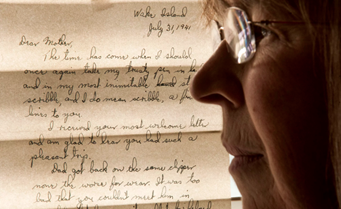 Wake Island
July 31, 1941
Dear Mother,
The time has come when I should,
once again take my trusty pen in ha
and in my most inimitable hand st
scribble and I do mean scribble, a few
lines to you.
I received your most welcome lette
and am glad to hear you had such a
pleasant trip.
Dad got back on the same clipper
none the worse for wear. It was too
bad that you couldn't meet him in